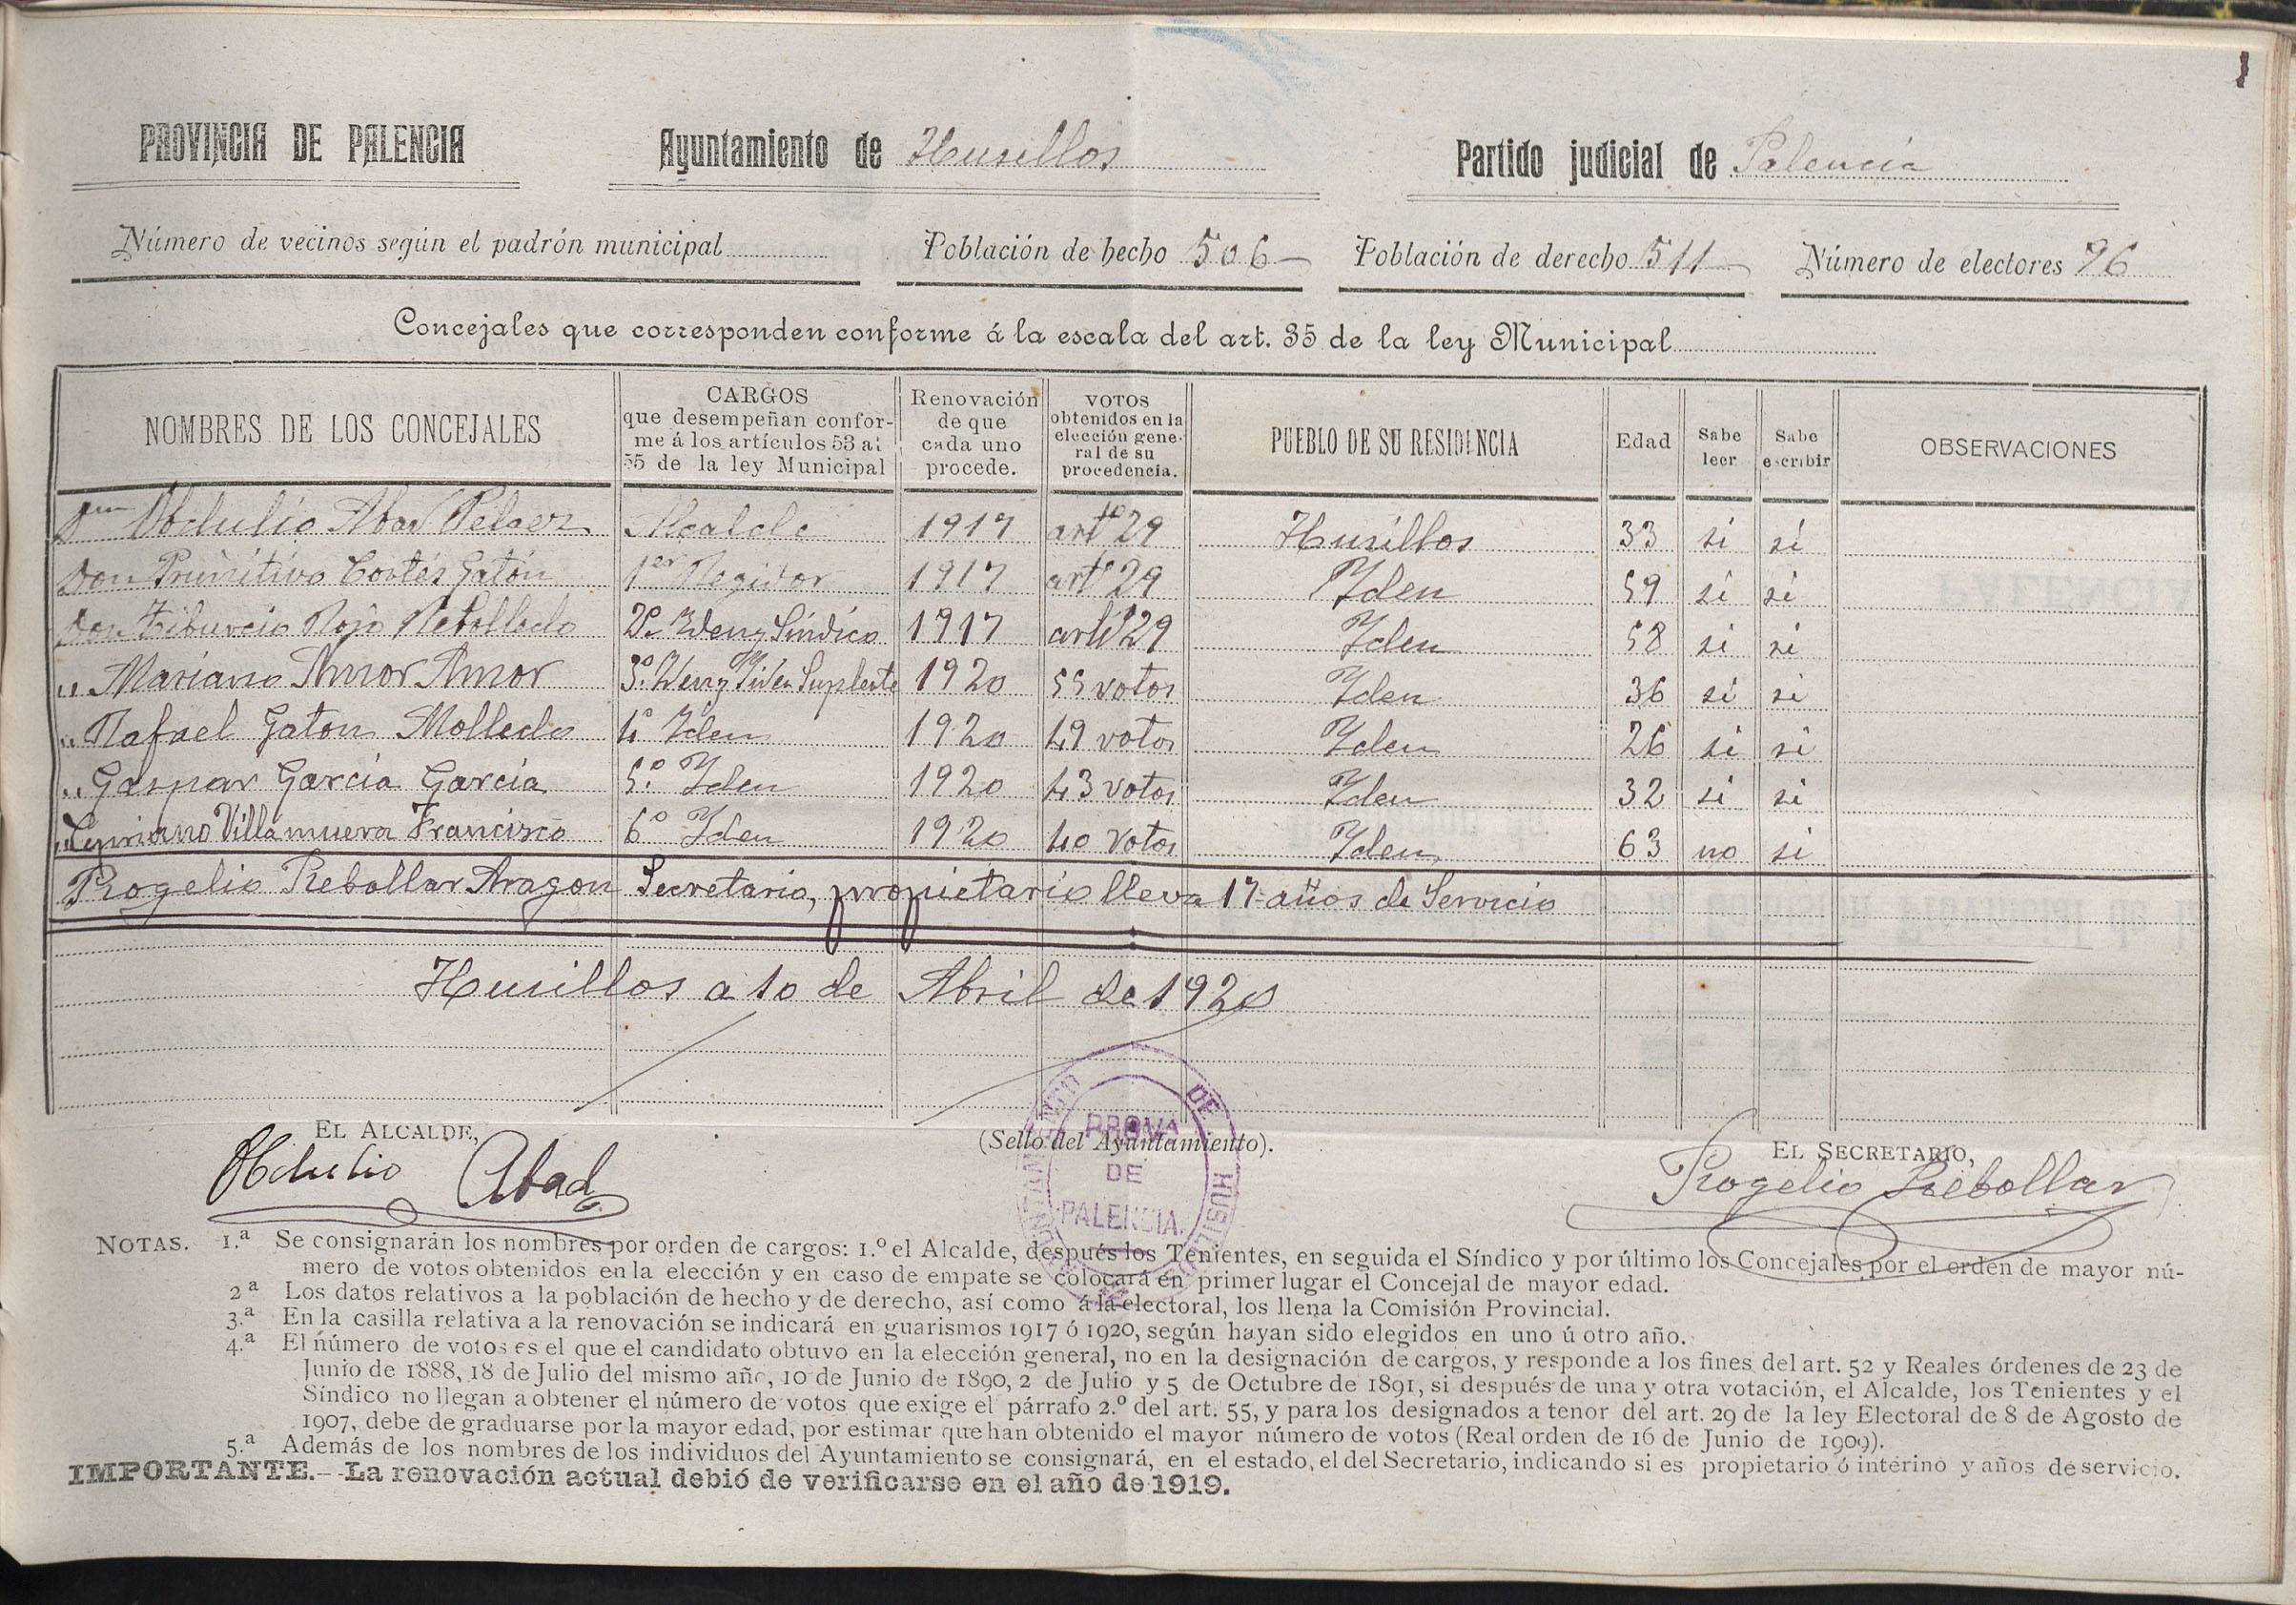 1
PROVINCIA DE PALENCIA Ayuntamiento de Husillos Partido judicial de Palencia
Número de vecinos según el padrón municipal Población de hecho 506 Población de derecho 511 Número de electores 96
Concejales que corresponden conforme á la escala del art. 35 de la ley Municipal
NOMBRES DE LOS CONCEJALES CARGOS que desempeñan confor- me á los artículos 53 al 55 de la ley Municipal Renovación de que cada uno procede. VOTOS obtenidos en la elección gene- ral de su procedencia. PUEBLO DE SU RESIDENCIA Edad Sabe leer Sabe escribir OBSERVACIONES
Don Obdulio Abad Pelaez Alcalde 1917 artº 29 Husillos 33 si si
Don Primitivo Cortés Gatón 1er Regidor 1917 artº 29 Yden 59 si si
Don Tiburcio Rojo Rebolledo 2º Yden y Síndico 1917 artº 29 Yden 58 si si
" Mariano Amor Amor 3º Yden y Yden Suplente 1920 55 votos Yden 36 si si
" Rafael Gaton Molledo 4º Yden 1920 49 votos Yden 26 si si
" Gaspar García García 5º Yden 1920 43 votos Yden 32 si si
" Cipriano Villanueva Francisco 6º Yden 1920 40 votos Yden 63 no si
Rogelio Rebollar Aragon Secretario, propietario lleva 17 años de Servicio
Husillos a 10 de Abril de 1920
EL ALCALDE, (Sello del Ayuntamiento). EL SECRETARIO,
Obdulio Abad Rogelio Rebollar
AYUNTAMIENTO DE HUSILLOS
PROVA
DE
PALENCIA.
NOTAS. 1.ª Se consignarán los nombres por orden de cargos: 1.º el Alcalde, después los Tenientes, en seguida el Síndico y por último los Concejales por el orden de mayor nú-
mero de votos obtenidos en la elección y en caso de empate se colocará en primer lugar el Concejal de mayor edad.
2ª Los datos relativos a la población de hecho y de derecho, así como á la electoral, los llena la Comisión Provincial.
3.ª En la casilla relativa a la renovación se indicará en guarismos 1917 ó 1920, según hayan sido elegidos en uno ú otro año.
4.ª El número de votos es el que el candidato obtuvo en la elección general, no en la designación de cargos, y responde a los fines del art. 52 y Reales órdenes de 23 de
Junio de 1888, 18 de Julio del mismo año, 10 de Junio de 1890, 2 de Julio y 5 de Octubre de 1891, si después de una y otra votación, el Alcalde, los Tenientes y el
Síndico no llegan a obtener el número de votos que exige el párrafo 2.º del art. 55, y para los designados a tenor del art. 29 de la ley Electoral de 8 de Agosto de
1907, debe de graduarse por la mayor edad, por estimar que han obtenido el mayor número de votos (Real orden de 16 de Junio de 1909).
5.ª Además de los nombres de los individuos del Ayuntamiento se consignará, en el estado, el del Secretario, indicando si es propietario ó interino y años de servicio.
IMPORTANTE.--La renovación actual debió de verificarse en el año de 1919.